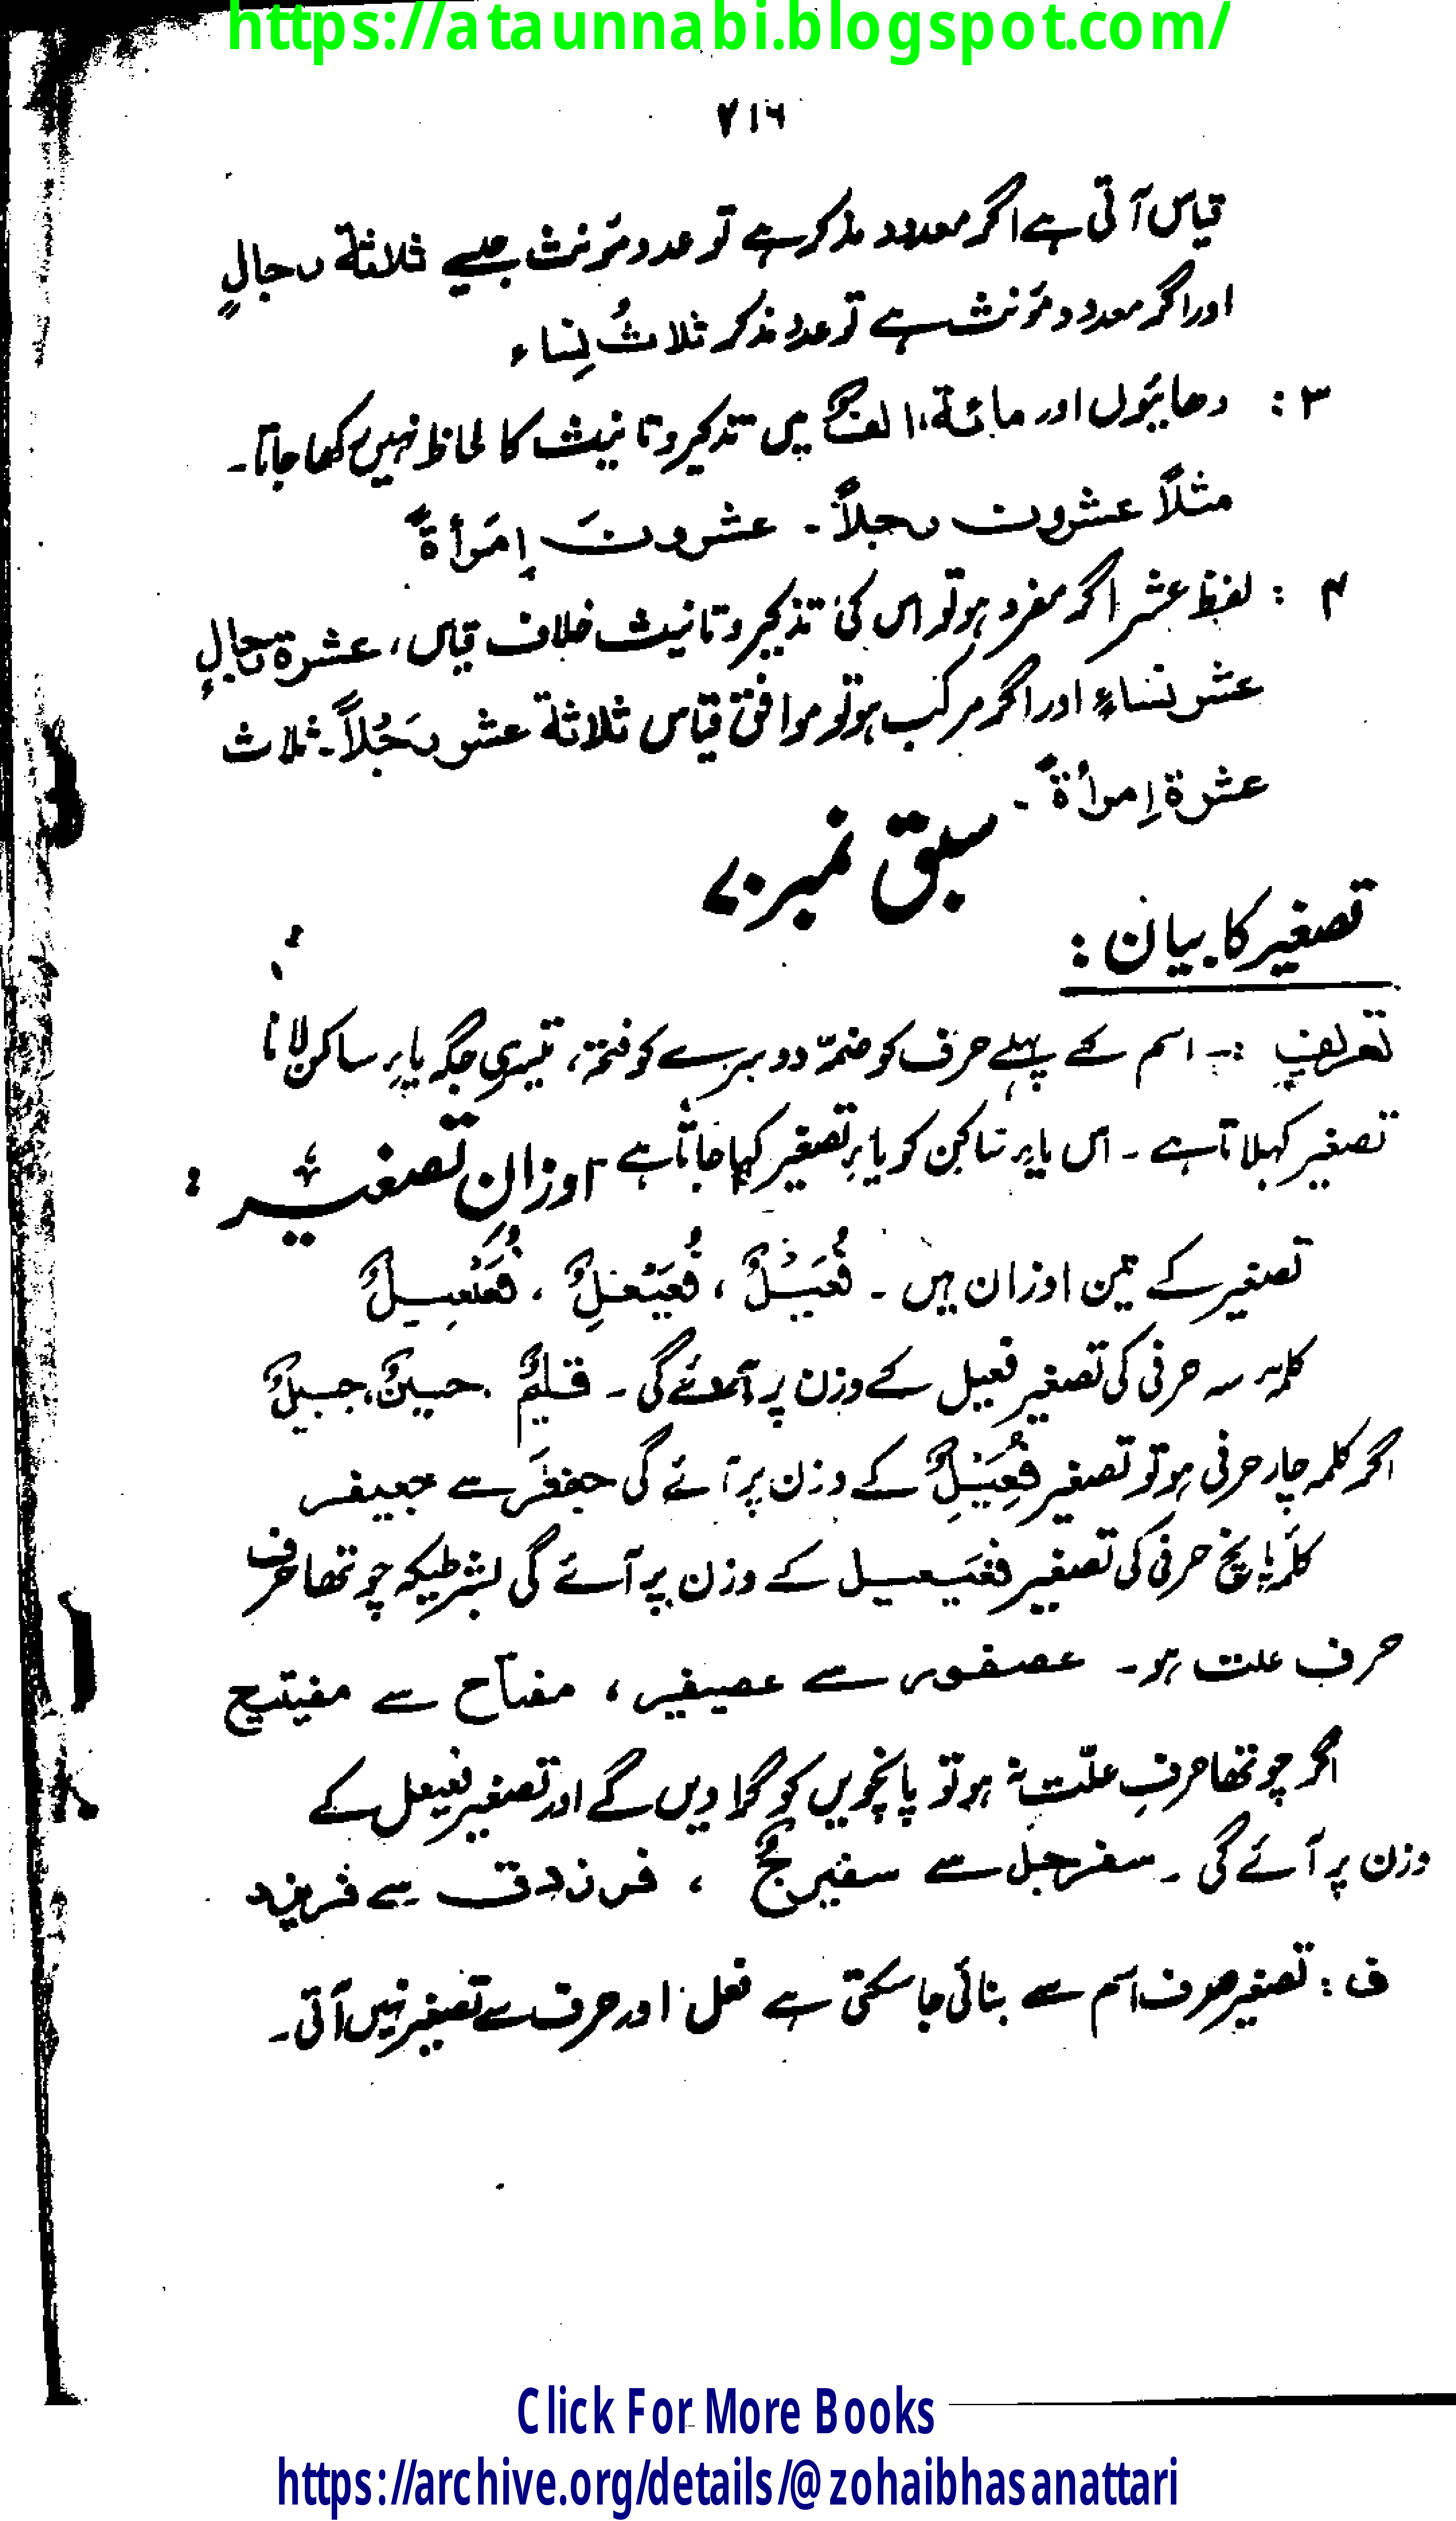 https://ataunnabi.blogspot.com/
۲۱۶
قیاس آتی ہے اگر معدود مذکر ہے تو عدد مؤنث جیسے ثلاثة رجالٍ
اور اگر معدود مؤنث ہے تو عدد مذکر ثلاثُ نِساء
۳ : دھائیوں اور مائة، الفٌ میں تذکیر و تانیث کا لحاظ نہیں رکھا جاتا۔
مثلاً عشرون رجلاً ۔ عشرونَ اِمَرأةً
۴ : لفظ عشر اگر مفرد ہو تو اس کی تذکیر و تانیث خلاف قیاس، عشرة رجالٍ
عشر نساءٍ اور اگر مرکب ہو تو موافق قیاس ثلاثة عشر رَجُلاً۔ ثلاث
عشرة اِمرأةً ۔
سبق نمبر ۷۰
تصغیر کا بیان :
تعریف :۔ اسم کے پہلے حرف کو ضمّہ دوسرے کو فتحہ، تیسری جگہ یاء ساکن لانا
تصغیر کہلاتا ہے ۔ اس یاء ساکن کو یاءِ تصغیر کہا جاتا ہے اوزانِ تصغیر :
تصغیر کے تین اوزان ہیں ۔ فُعَیْلٌ ، فُعَیْعِلٌ ، فُعَیْعِیلٌ
کلمہ سہ حرفی کی تصغیر فعیل کے وزن پر آئے گی ۔ قلیمٌ ، حسینٌ، جبیلٌ
اگر کلمہ چار حرفی ہو تو تصغیر فُعَیْلِلٌ کے وزن پر آئے گی جعفر سے جعیفر
کلمہ پانچ حرفی کی تصغیر فعَیعیل کے وزن پر آئے گی بشرطیکہ چوتھا حرف
حرف علت ہو۔ عصفور سے عصیفیر ، مفتاح سے مفیتیح
اگر چوتھا حرفِ علّت نہ ہو تو پانچویں کو گرا دیں گے اور تصغیر فعیعل کے
وزن پر آئے گی ۔ سفرجل سے سفیرجٌ ، فرزدق سے فریزد
ف : تصغیر صرف اسم سے بنائی جا سکتی ہے فعل اور حرف سے تصغیر نہیں آتی۔
Click For More Books
https://archive.org/details/@zohaibhasanattari